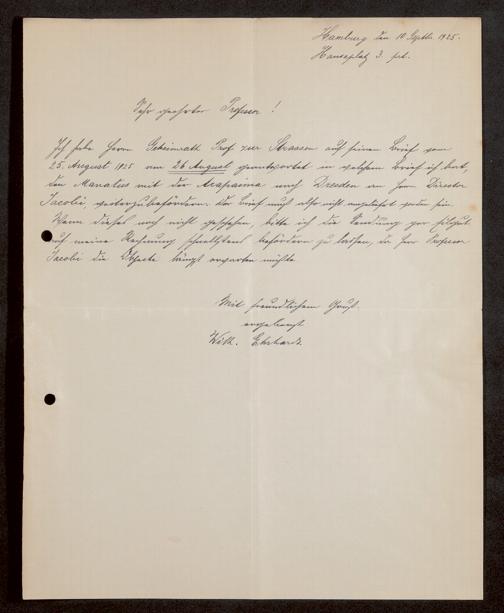 Hamburg den 10 Septbr 1925.
Hansaplatz 3. prt.
Sehr geehrter Professor!
Ich habe Herrn Geheimrath Prof zur Strassen auf seinen Brief vom
25. August 1925 am 26 August geantwortet in welchem Brief ich bat,
den Manatus mit der Arapaima nach Dresden an Herrn Director
Jacobi, weiterzubefördern. Der Brief muß also nicht angelangt sein.
Wenn dieses noch nicht geschehen, bitte ich die Sendung per Eilgut
auf meine Rechnung schnellstens befördern zu lassen, da Herr Professor
Jacobi die Objecte längst erwarten möchte.
Mit freundlichem Gruß
ergebenst
Wilh. Ehrhardt.